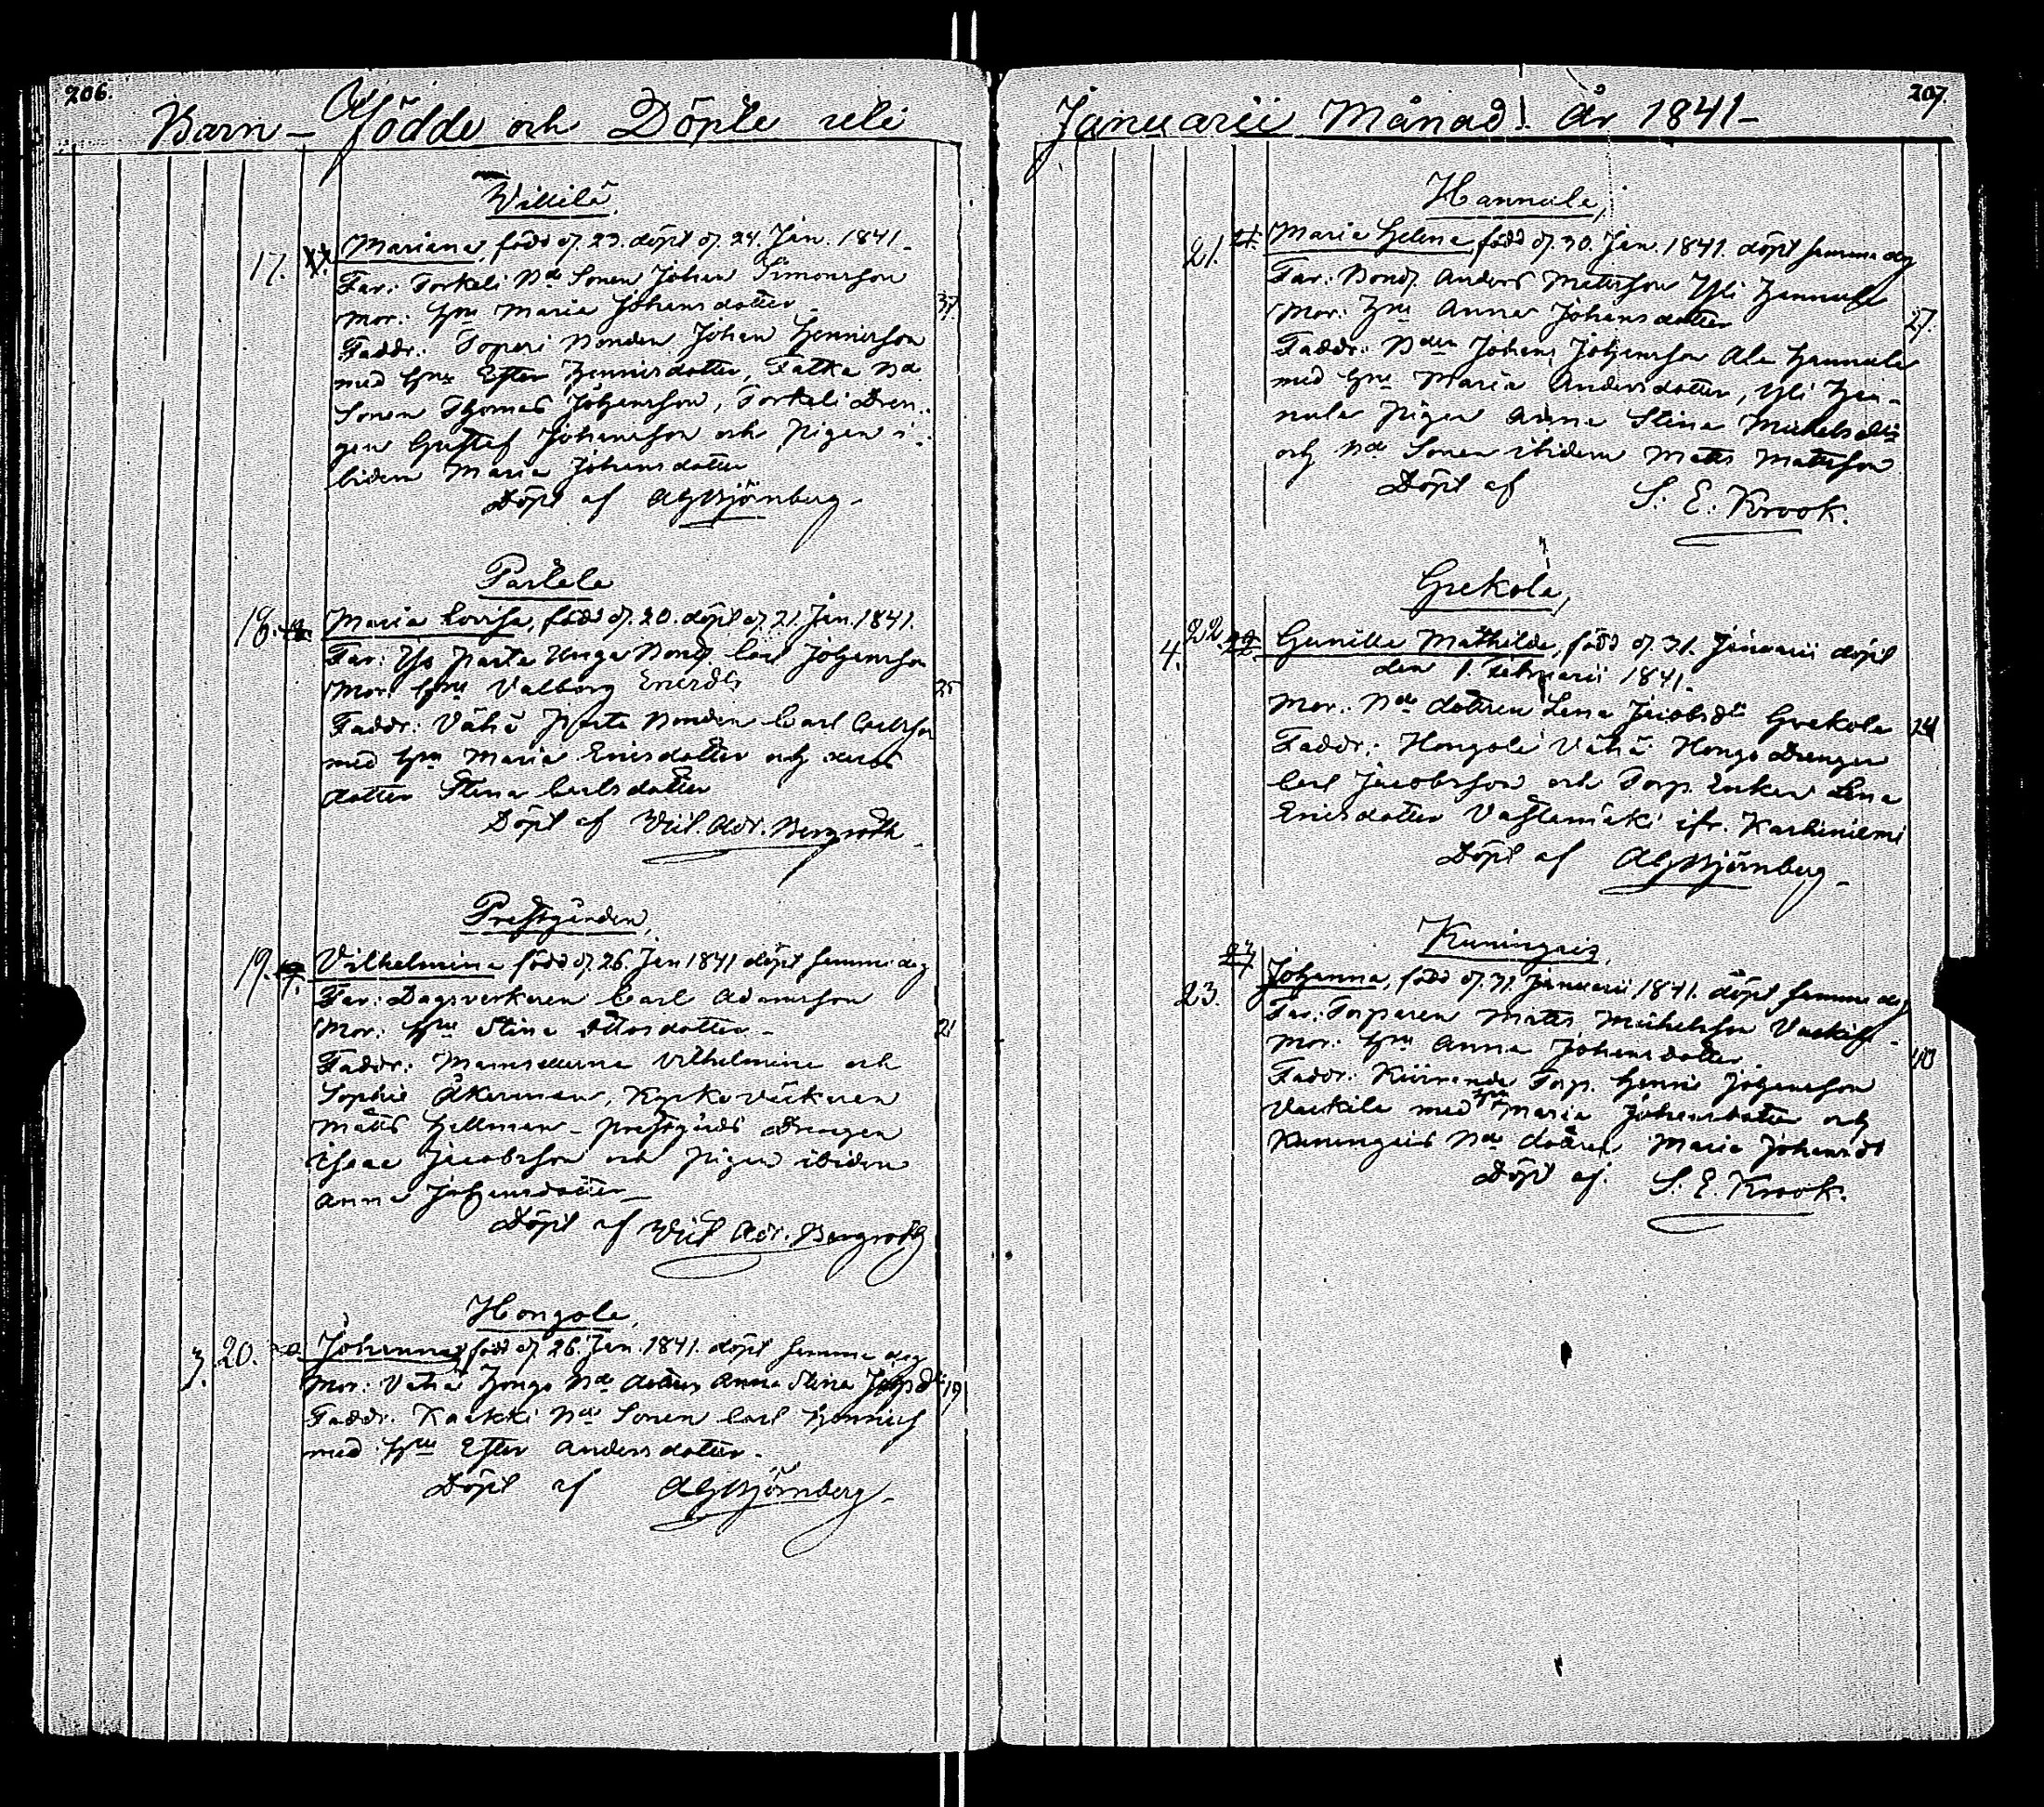 206.
Barn - Födde och Döpte uti
Willilä,
17. Mariana, född d. 23. döpt d. 24. Jan. 1841.
Far: Torkeli Bde Sonen Johan Simonsson
Mor: Hu Maria Johansdotter 37.
Faddr: Toperi Bonden Johan Henricsson
med Hu Ester Henricsdotter, Fatka Bd
Sonen Thomas Johansson, Torkeli Dren-
gen Gustaf Johansson och Pigan i-
bidem Maria Johansdotter
Döpt af AGBjörnberg.
Partela
18. Maria Lovisa, född d. 20. döpt d. 21. Jan. 1841.
Far: Parta Unga Bond. Carl Johansson
Mor: Hu Valborg Ericsdr 25
Faddr: Vähä Parta Bonden Carl Carlsson
med Hu Maria Ericsdotter och deras
dotter Stina Carlsdotter
Döpt af Wil. Adr. Bergroth
Prestgården,
19. Vilhelmina född d. 26. Jan 1841 döpt samma dag
Far: Dagsverkaren Carl Adamsson
Mor: Hu Stina Ottosdotter 21
Faddr: Mamsellerna Vilhelmina och
Sophie Åkerman, Kyrkoväktaren
Matts Hellman - prestgårds Drengen
Isaac Jacobsson och Pigan ibidem
Anna Johansdotter
Döpt af Wil Adr. Bergroth
Hongola,
3. 20. Johanna, född d. 26. Jan. 1841. döpt samma dag
Mor: Vähä Hongo Bde dottren Anna Stina 19
Faddr. Kaakki Bde Sonen Carl Henricss
med Hu Ester Andersdotter.
Döpt af AGBjörnberg.
207.
Januarii Månad! År 1841-
Hannula,
21. 21. Maria Helena, född d. 30. Jan. 1841. döpt samma dag
Far: Bond. Anders Mattsson Yli Hannula
Mor: Hu Anna Johansdotter 27.
Faddr: Bden Johan Johansson Ala Hannula
med Hu Maria Andersdotter, Yli Han-
nula Pigan Anna Stina Michelsdtr
och Bde Sonen ibidem Matts Mattsson
Döpt af S. E. Krook.
Grekola,
4. 22. 22. Gunilla Mathilda, född d. 31. Januarii döpt
den 1. Februarii 1841.
Mor: Bde dottren Lena Jacobsdtr Grekola 24
Faddr: Hongola Vähä Hongo Drengen
Carl Jacobsson och Torp. Enkan Lena
Ericsdotter Vastamäki ifr. Karhiniemi
Döpt af AGBjörnberg.
Kuningais,
23. Johanna, född d. 31. Januarii 1841. döpt samma dag
Far: Torparen Matts Michelsson Vaskila
Mor: Hu Anna Johansdotter 40
Faddr: Torp. Henric Johansson
Vaskila med Hu Maria Johansdotter och
Kuningais Bde dottren Maria Johansdr
Döpt af. S. E. Krook.